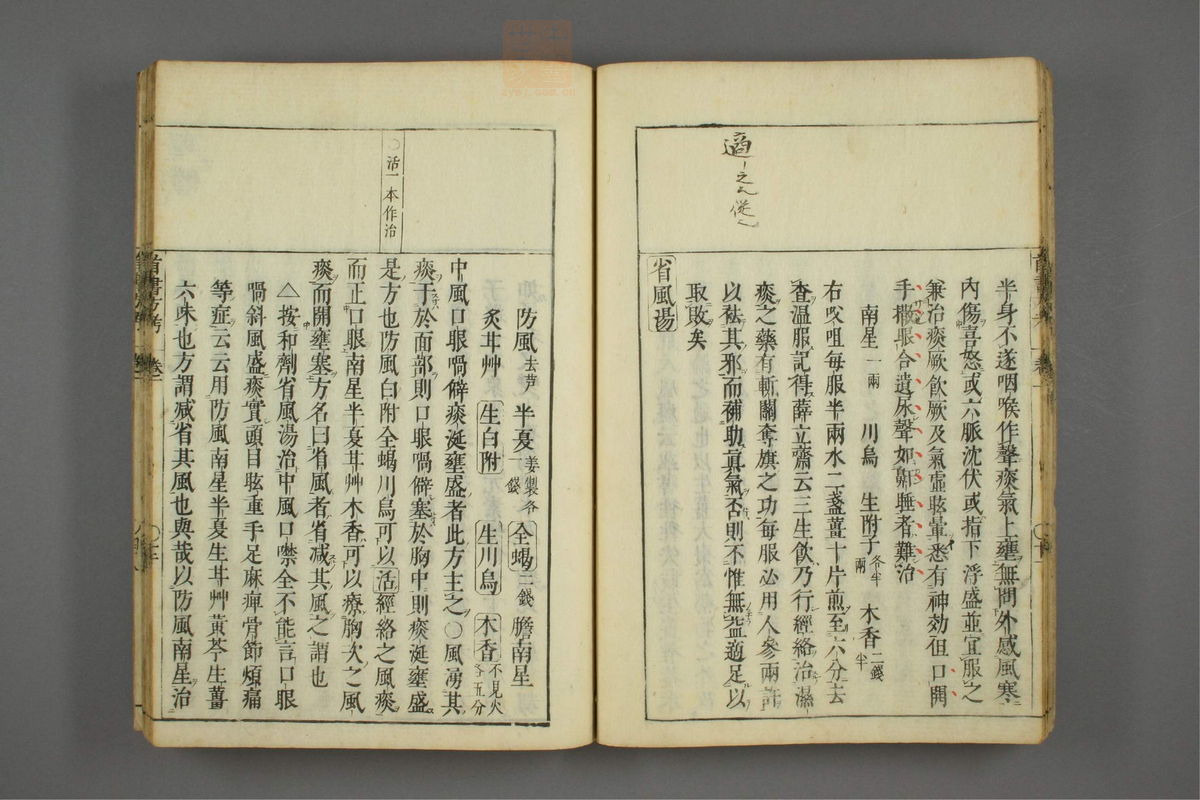 適之ハ從
半身不遂咽喉作聲痰氣上壅無問外感風寒
內傷喜怒或六脈沈伏或指下浮盛並宜服之
兼治痰厥飲厥及氣虛眩暈悉有神効但口開
手撒眼合遺尿聲如鼾䶎者難治
南星一兩 川烏 生附子各半兩 木香二錢半
右㕮咀每服半兩水二盞薑十片煎至六分去
查溫服記得薛立齋云三生飲乃行經絡治濕
痰之藥有斬關奪旗之功每服必用人參兩許
以祛其邪而補助真氣否則不惟無益適足以
取敗矣
省風湯
〇活一本作治
防風去芦 半夏姜製各錢 全蝎三錢 膽南星
炙甘艸 生白附 生川烏 木香不見火各五分
中風口眼喎僻痰涎壅盛者此方主之〇風涌其
痰于於面部則口眼喎僻塞於胸中則痰涎壅盛
是方也防風白附全蝎川烏可以活經絡之風痰
而正口眼南星半夏甘艸木香可以療胸次之風
痰而開壅塞方名曰省風者省減其風之謂也
△按和劑省風湯治中風口噤全不能言口眼
喎斜風盛痰實頭目眩重手足麻痺骨節煩痛
等症云云用防風南星半夏生甘艸黃芩生薑
六味也方謂減省其風也與哉以防風南星治